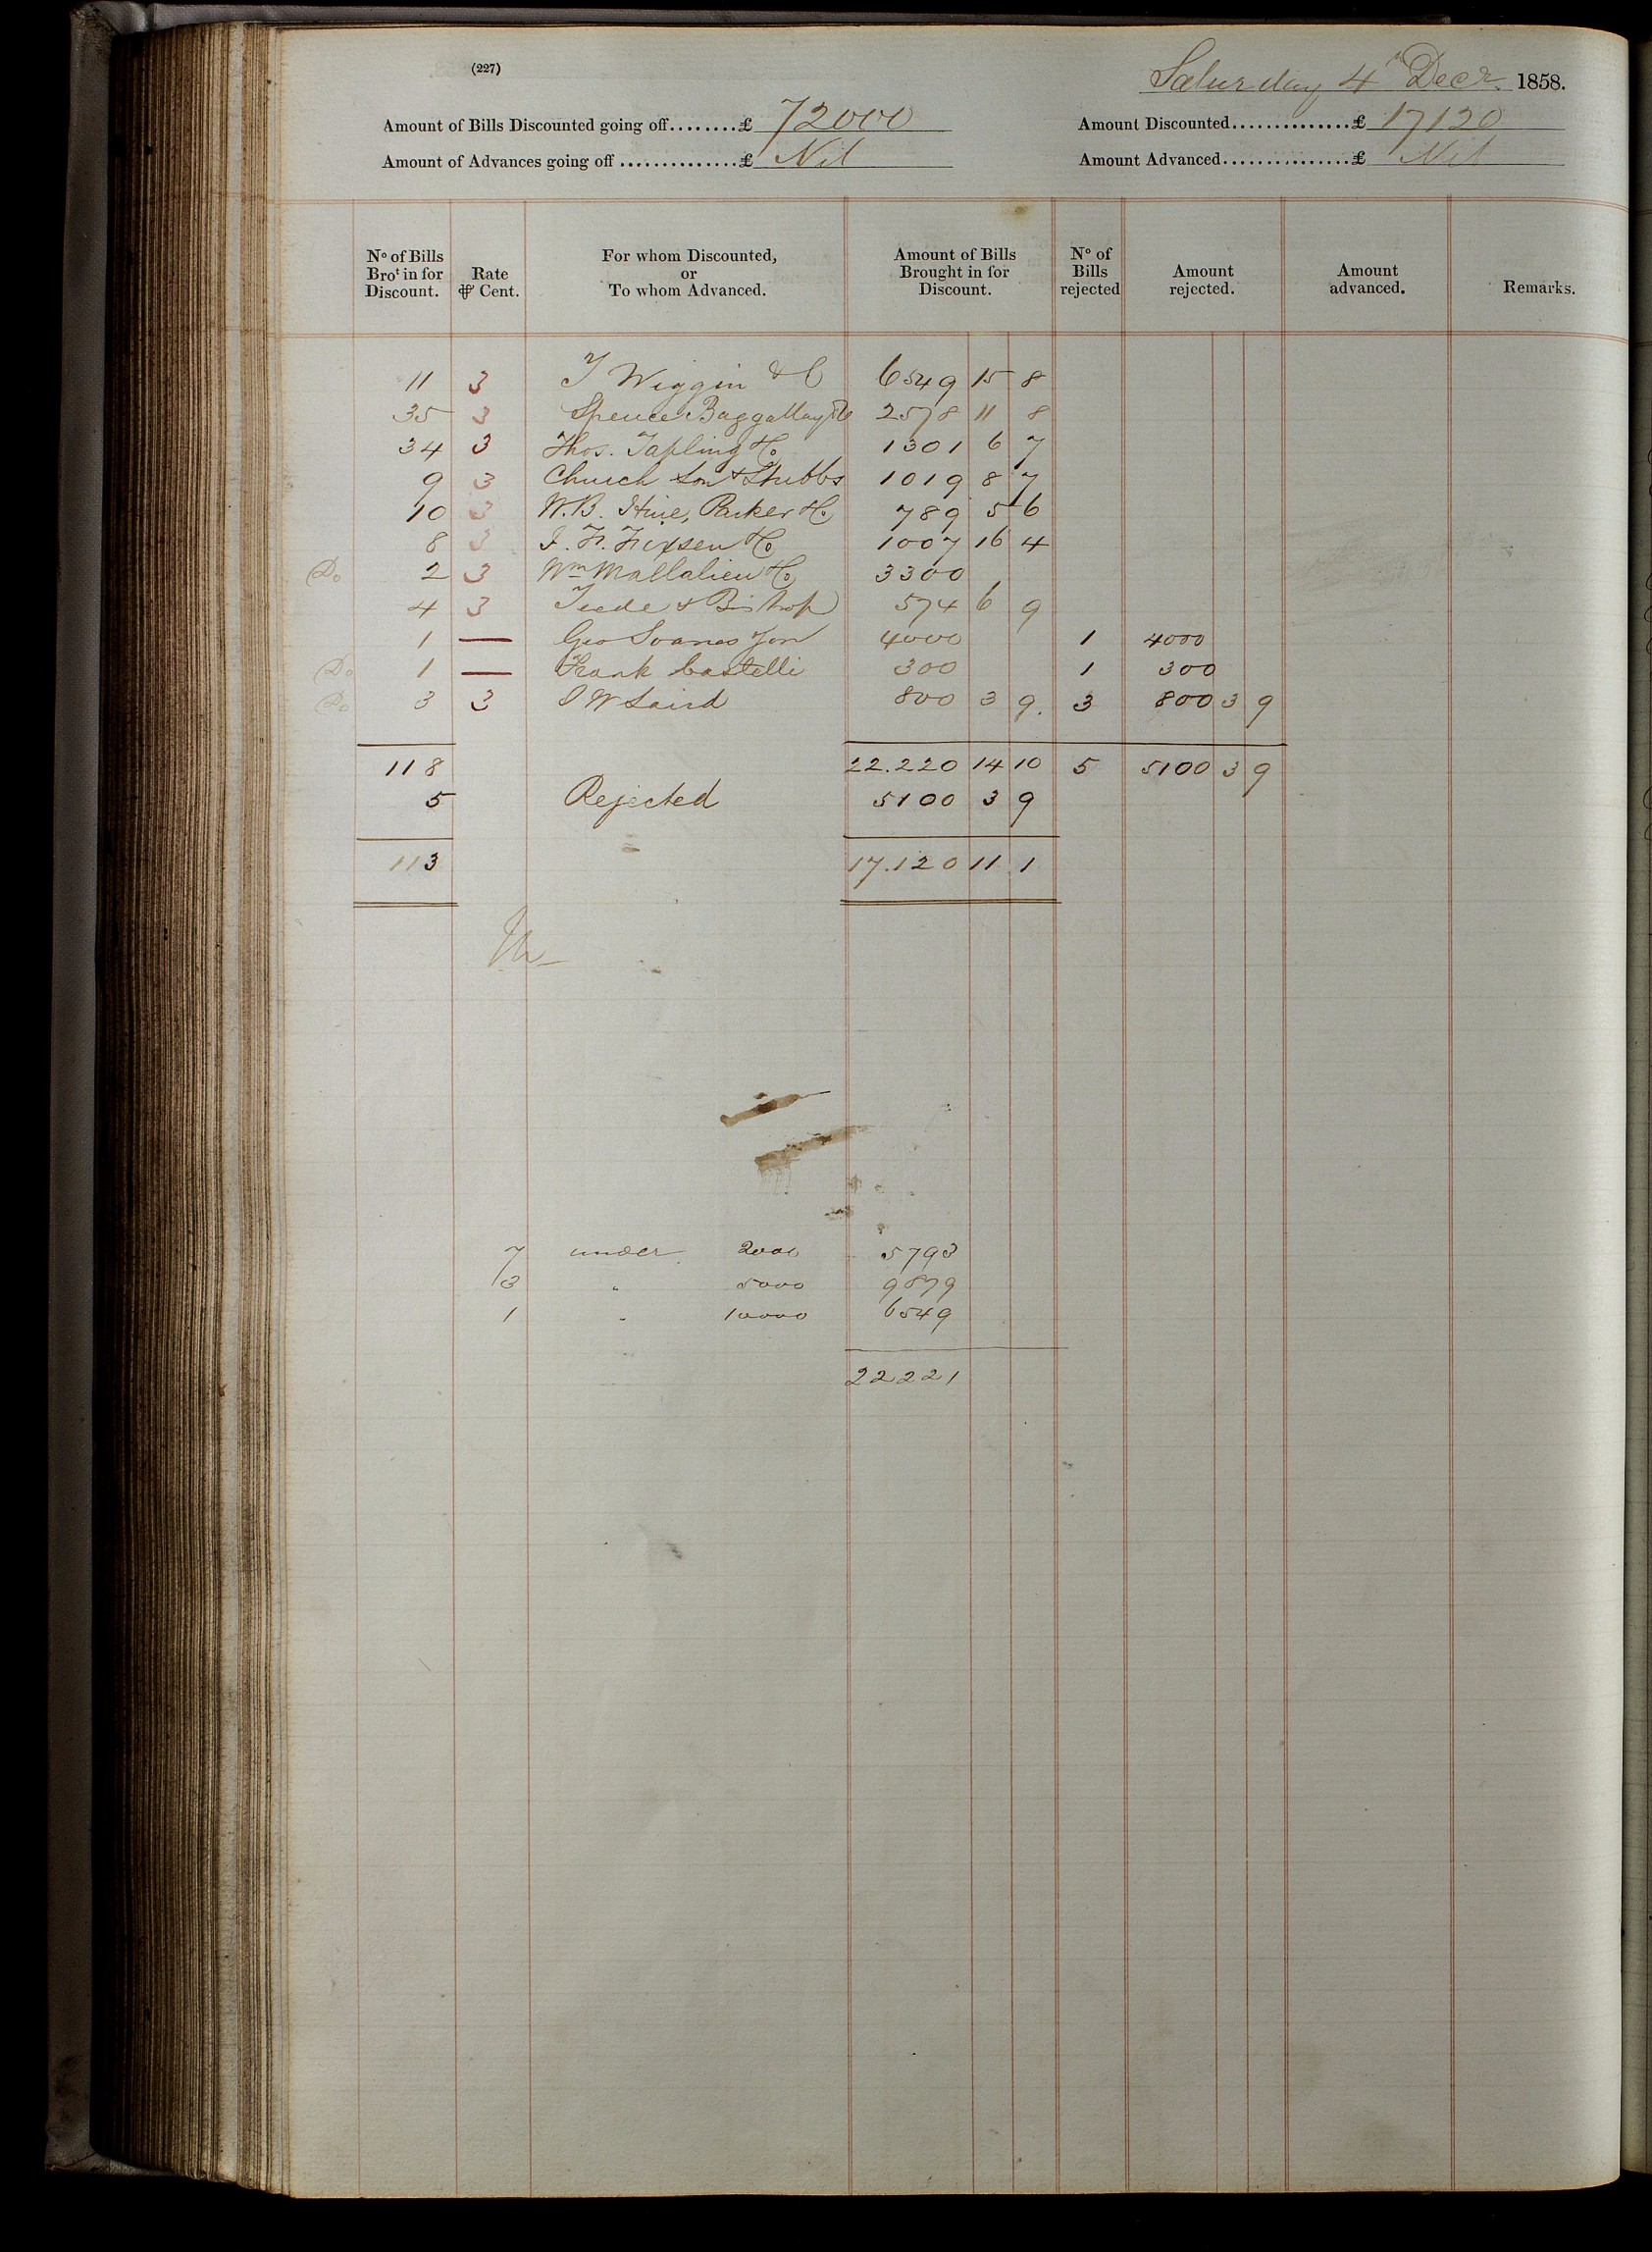 (227)
Saturday 4th Decr. 1858.
Amount of Bills Discounted going off........£ 72000 Amount Discounted..............£ 17120
Amount of Advances going off ..............£ Nil Amount Advanced...............£ Nil
No of Bills Brot in for Discount. Rate ⅌ Cent. For whom Discounted, or To whom Advanced. Amount of Bills Brought in for Discount. No of Bills rejected Amount rejected. Amount advanced. Remarks.
11 3 T Wiggin & C 6549 15 8
35 3 Spence Baggallay & Co 2578 11 8
34 3 Thos. Tapling & Co 1301 6 7
9 3 Church Son & Stubbs 1019 8 7
10 3 W.B. Hine, Parker & Co 789 5 6
8 3 I. F. Fixsen & Co 1007 16 4
Do 2 3 Wm Mallalieu & Co 3300
4 3 Teede & Bishop 574 6 9
1 — Geo Soanes Jon 4000 1 4000
Do 1 — Frank Castelli 300 1 300
Do 3 3 I W Laird 800 3 9. 3 800 3 9
118 22.220 14 10 5 5100 3 9
5 Rejected 5100 3 9
113 17.120 11 1
7 under 2000 5793
3 " 5000 9879
1 " 10000 6549
22221